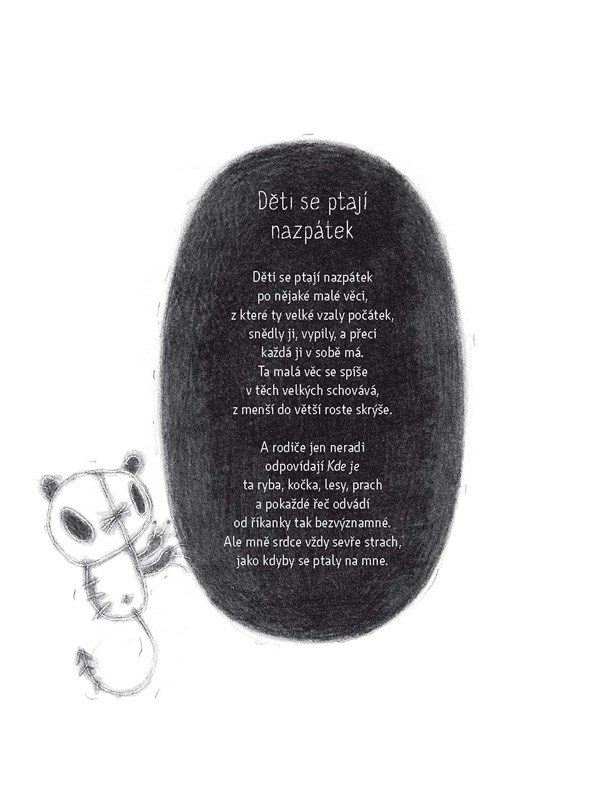 Děti se ptají
nazpátek
Děti se ptají nazpátek
po nějaké malé věci,
z které ty velké vzaly počátek,
snědly ji, vypily, a přeci
každá ji v sobě má.
Ta malá věc se spíše
v těch velkých schovává,
z menší do větší roste skrýše.
A rodiče jen neradi
odpovídají Kde je
ta ryba, kočka, lesy, prach
a pokaždé řeč odvádí
od říkanky tak bezvýznamné.
Ale mně srdce vždy sevře strach,
jako kdyby se ptaly na mne.